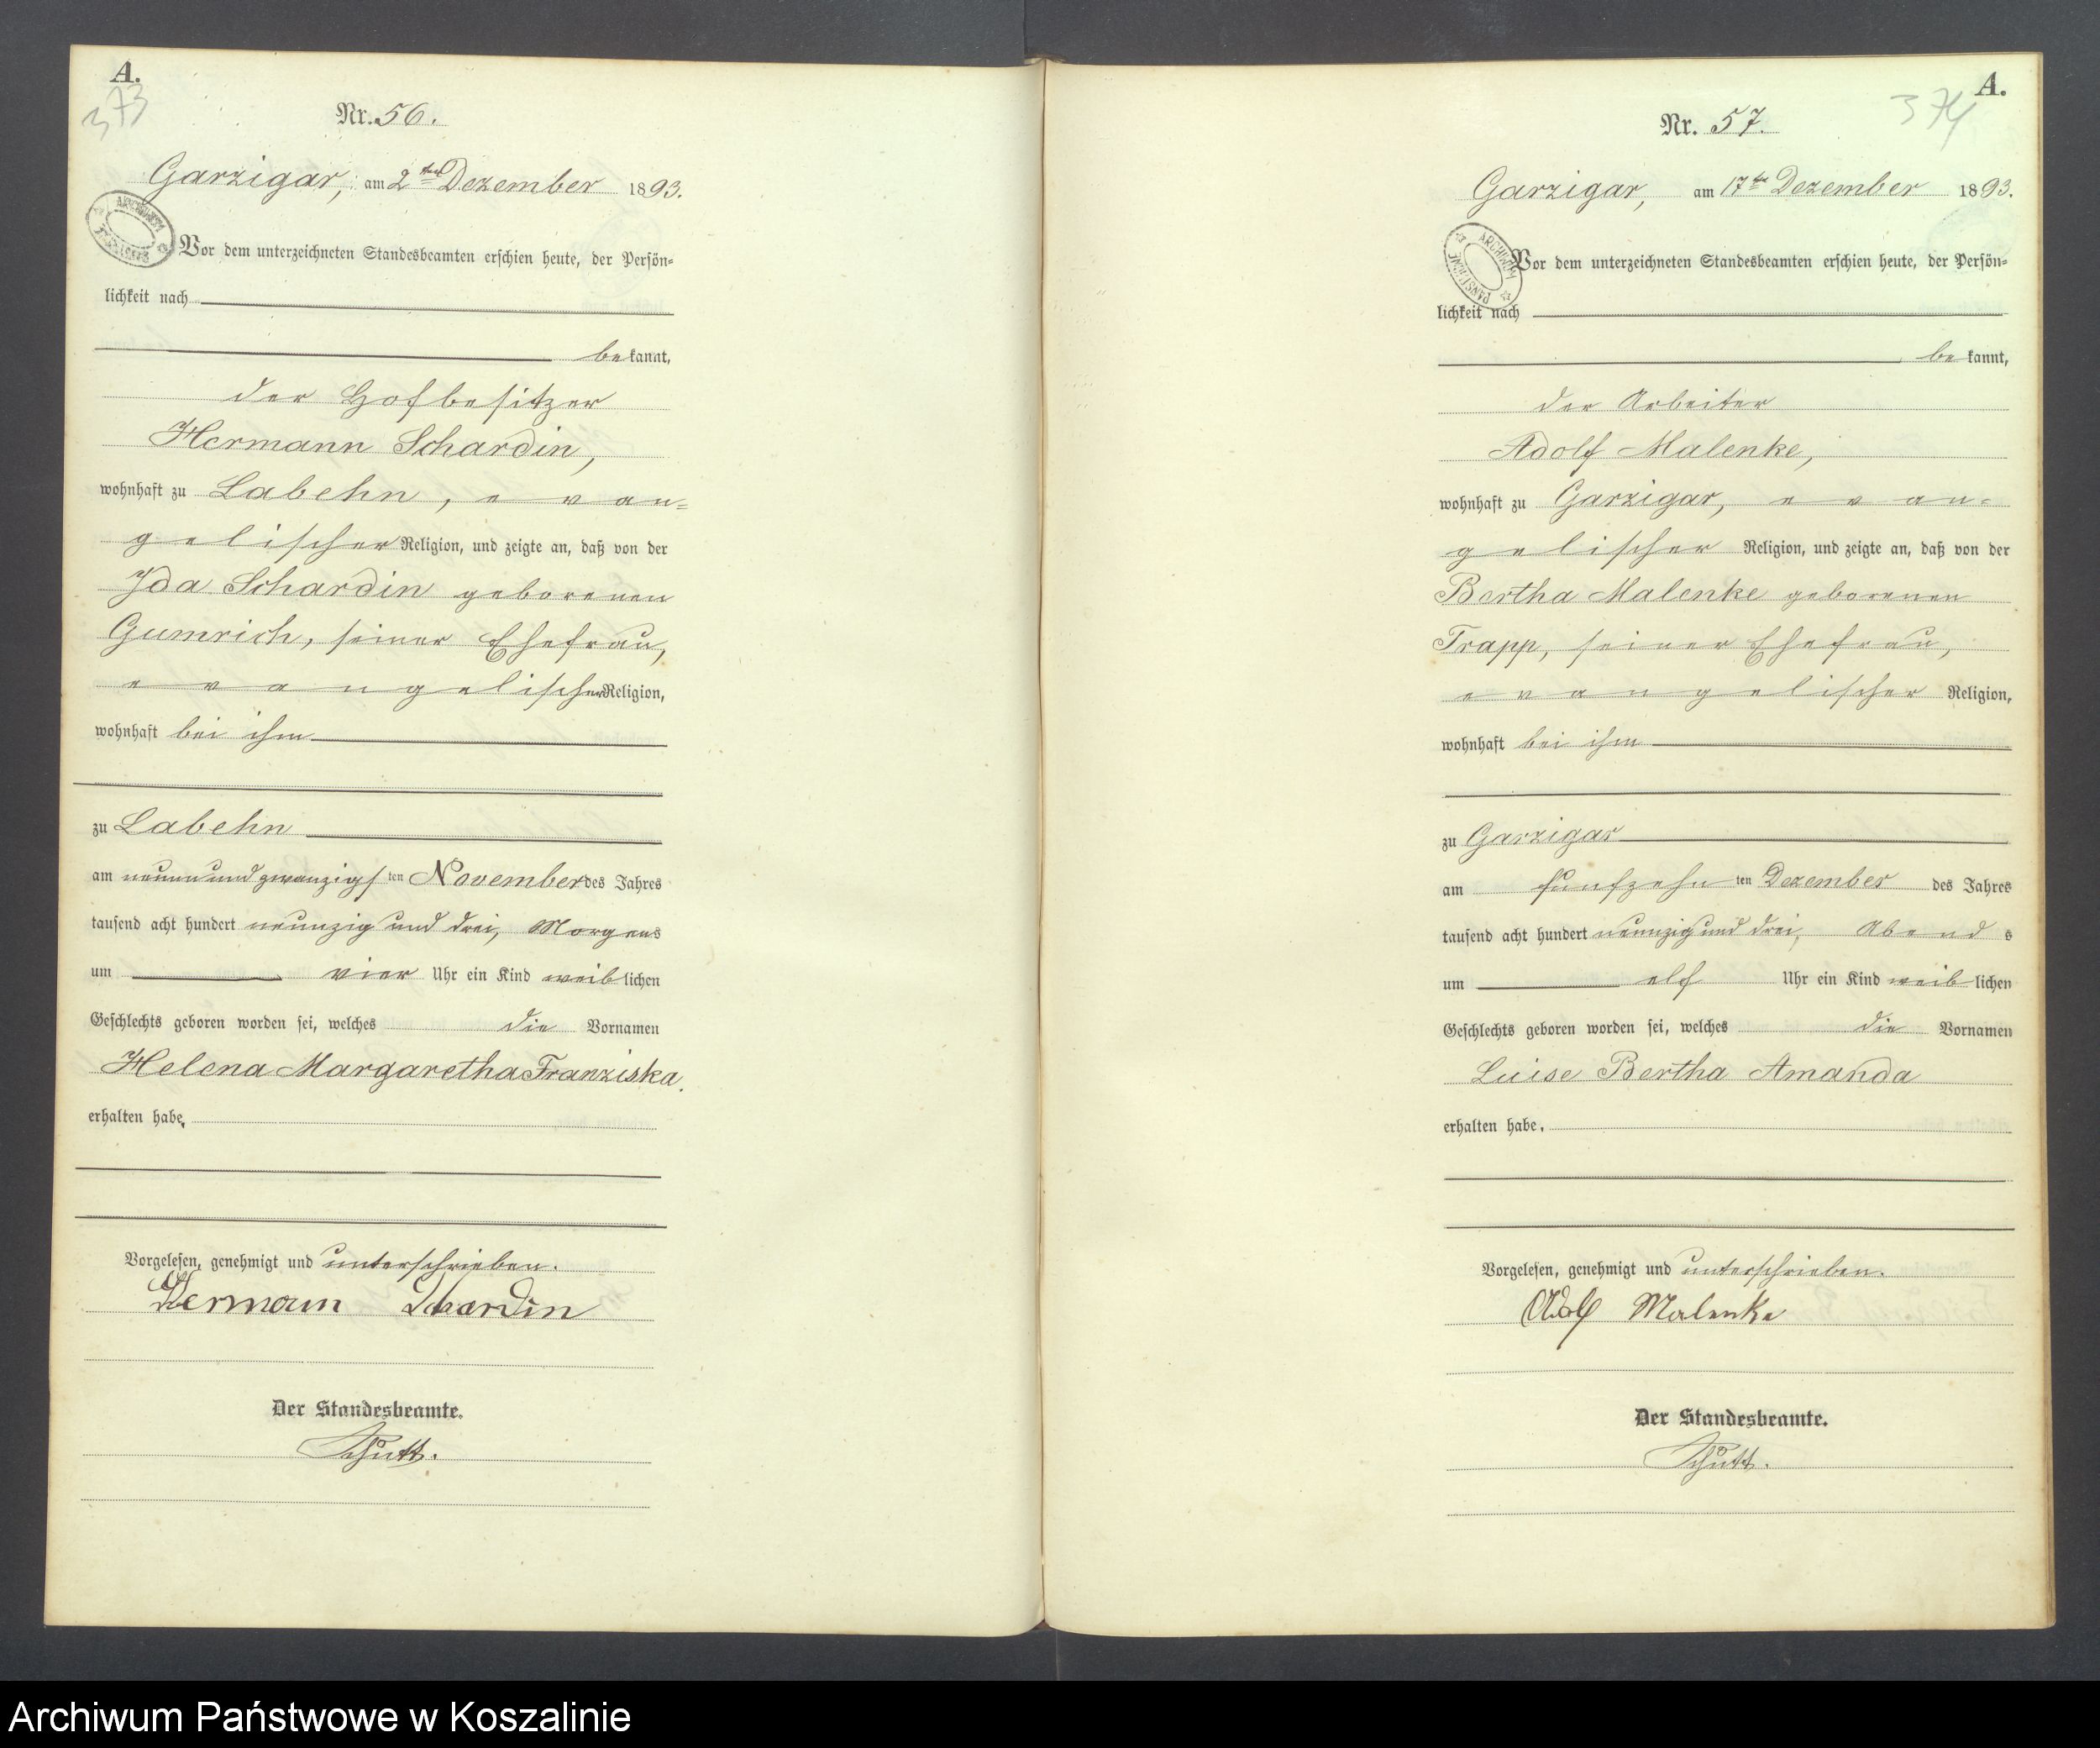 A.
373
Nr. 56.
Garzigar, am 2ten Dezember 1893.
ARCHIWUM
Vor dem unterzeichneten Standesbeamten erschien heute, der Persön=
lichkeit nach
bekannt,
der Hofbesitzer
Hermann Schardin,
wohnhaft zu Labehn, evan=
gelischer Religion, und zeigte an, daß von der
Ida Schardin geborenen
Gumrich, seiner Ehefrau,
evangelischer Religion,
wohnhaft bei ihm
zu Labehn
am neunundzwanzigsten November des Jahres
tausend acht hundert neunzig und drei, Morgens
um vier Uhr ein Kind weiblichen
Geschlechts geboren worden sei, welches die Vornamen
Helena Margaretha Franziska
erhalten habe.
Vorgelesen, genehmigt und unterschrieben.
Hermann Schardin
Der Standesbeamte.
Schutt.
A.
374
Nr. 57.
Garzigar, am 17ten Dezember 1893.
ARCHIWUM PAŃSTWOWE
Vor dem unterzeichneten Standesbeamten erschien heute, der Persön=
lichkeit nach
bekannt,
der Arbeiter
Adolf Malenke,
wohnhaft zu Garzigar, evan=
gelischer Religion, und zeigte an, daß von der
Bertha Malenke geborenen
Trapp, seiner Ehefrau,
evangelischer Religion,
wohnhaft bei ihm
zu Garzigar
am funfzehnten Dezember des Jahres
tausend acht hundert neunzig und drei, Abends
um elf Uhr ein Kind weiblichen
Geschlechts geboren worden sei, welches die Vornamen
Luise Bertha Amanda
erhalten habe.
Vorgelesen, genehmigt und unterschrieben.
Adolf Malenke
Der Standesbeamte.
Schutt.
Archiwum Państwowe w Koszalinie